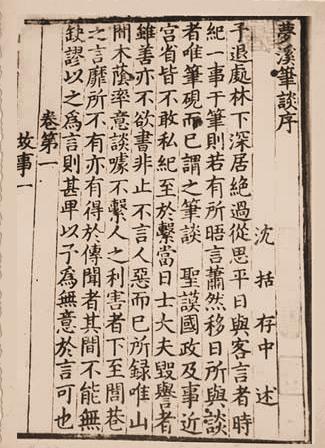 夢溪筆談序
沈括存中述
予退處林下深居絶過從思平日與客言者時
紀一事于筆則若有所晤言蕭然移日所與談
者唯筆硯而已謂之筆談聖謨國政及事近
宫省皆不敢私紀至於繫當日士大夫毀譽者
雖善亦不欲書非止不言人惡而已所録唯山
間木蔭率意談噱不繫人之利害者下至閭巷
之言靡所不有亦有得於傳聞者其間不能無
缺謬以之爲言則甚卑以予爲無意於言可也
卷第一
故事一